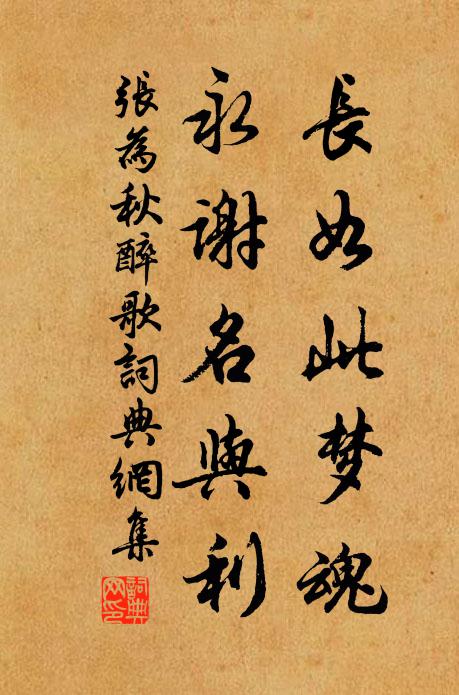 長如此梦魂
永謝名與利
張為秋醉歌詞典網集
詞典网印